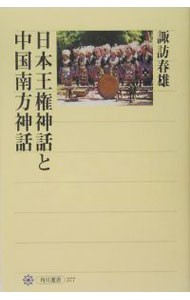 諏訪春雄
日本王権神話と
中国南方神話
角川選書 | 377